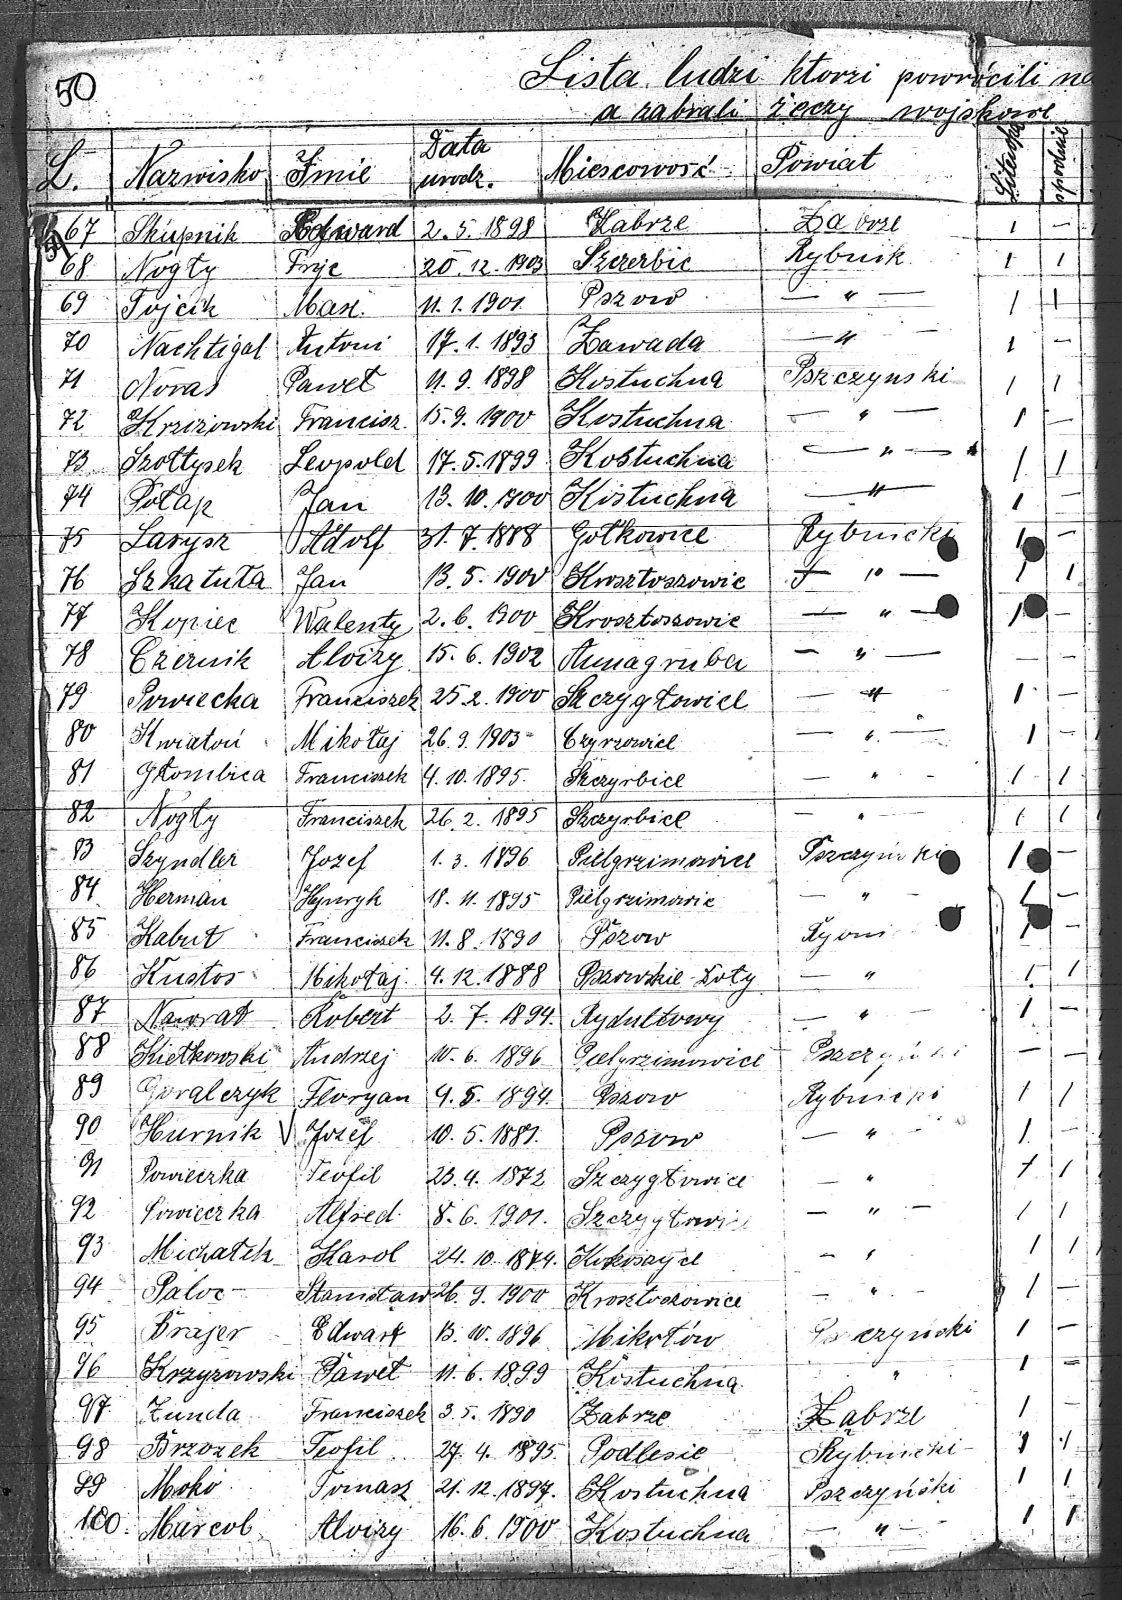 50
Lista ludzi ktorzi powrócili na
a zabrali żeczy wojskowe
L. Nazwisko Imie Data urodz. Miescowość Powiat spodnie
67 Skupnik Edward 2.5.1898 Zabrze Zabrze 1 -
68 Nogły 20.12.1903 Szczerbic Rybnik 1 1
69 Tojcik Max. 11.1.1901 Pszow — " — 1 1
70 Nachtigal Antoni 17.1.1893 Zawada — " — 1 -
71 Noras Paweł 11.9.1898 Kostuchna Pszczynski 1 1
72 Krziżowski Francisz. 15.9.1900 Kostuchna — " — 1 —
73 Szołtysek Leopold 17.5.1899 Kostuchna — " — 1 1
74 Potap Jan 13.10.1900 Kostuchna — " — 1 —
75 Larysz Adolf 31.7.1888 Gołkowice Rybnicki 1 —
76 Szkatuła Jan 13.5.1900 Krosztoszowic — " — 1 1
77 Kopiec Walenty 2.6.1900 Krosztoszowic — " — 1 —
78 Czernik Aloizy 15.6.1902 Annagruba — " — — —
79 Powiecka Franciszek 25.2.1900 Szczygłowice — " — 1 —
80 Kwiatoń Mikołaj 26.9.1903 Czyrzowice — " — 1 —
81 Głombica Franciszek 4.10.1895 Szczyrbice — " - 1 1
82 Nogły Franciszek 26.2.1895 Szczyrbice — " — 1 1
83 Szyndler Jozef 1.3.1896 Pielgrzimowice Pszczyński 1 —
84 Herman Henryk 18.11.1895 Pielgrzimowic — " 1 —
85 Kabut Franciszek 11.8.1890 Pszow 1 —
86 Kustos Mikołaj 4.12.1888 Pszowskie-Doły — " 1 1
87 Nawrat Robert 2.7.1894. Rydułtowy — " 1 —
88 Kietkowski Andrzej 10.6.1896 Pielgrzimowice Pszczyński — —
89 Goralczyk Floryan 4.5.1894. Pszow Rybnicki 1 1
90 Hurnik V Jozef 10.5.1881. Pszow — " — 1. —
91 Powieczka Teofil 23.4.1872 Szczygłowice — " 1 1
92 Powieczka Alfred 8.6.1901. Szczygłowic — " — 1 1
93 Michałek Karol 24.10.1874. Kokoszyce — " 1 1
94 Paloc Stanisław 26.9.1900 Krosztoszowice — " 1 —
95 Brajer Edwart 13.10.1896 Mikołów Pszczyński 1 —
96 Krzyzowski Paweł 11.6.1899 Kostuchna " 1 —
97 Zunda Franciszek 3.5.1890 Zabrze Zabrze 1 —
98 Brzozek Teofil 27.4.1895. Podlesie Rybnicki 1 1
99 Moko Tomasz 21.12.1897. Kostuchna Pszczyński 1 1
100. Marcol Aloizy 16.6.1900 Kostuchna — " — 1 1